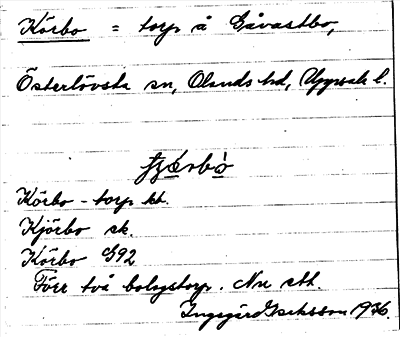 Körbo = torp å Gåvastbo,
Österlövsta sn, Olands hd, Uppsala l.
Körbo - torp kt.
Kjörbo sk.
Körbo G92
Förr två bolagstorp. Nu ett.
Ingegärd Isaksson 1936.